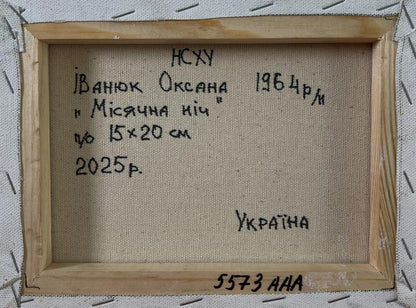 НСХУ
Іванюк Оксана 1964 р/н
„Місячна ніч"
п/о 15×20 см
2025р.
Україна
5573 ААА